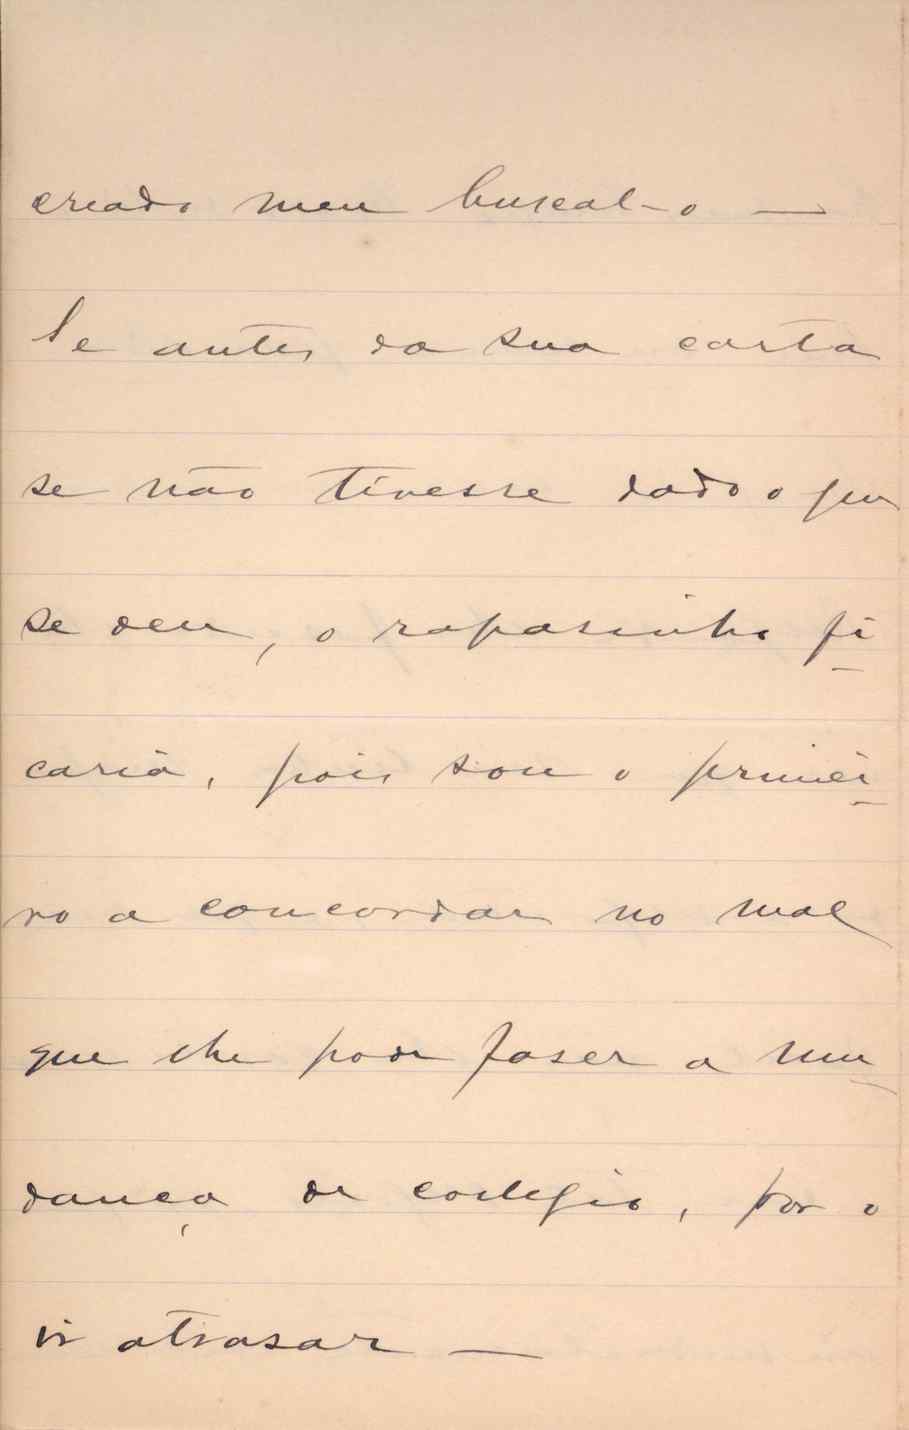 creado meu buscal-o —
Se antes da sua carta
se não tivesse dado o que
se deu, o rapasinho fi-
caria, pois sou o primei-
ro a concordar no mal
que lhe pode faser a mu-
dança de collegio, por o
ir atrasar —